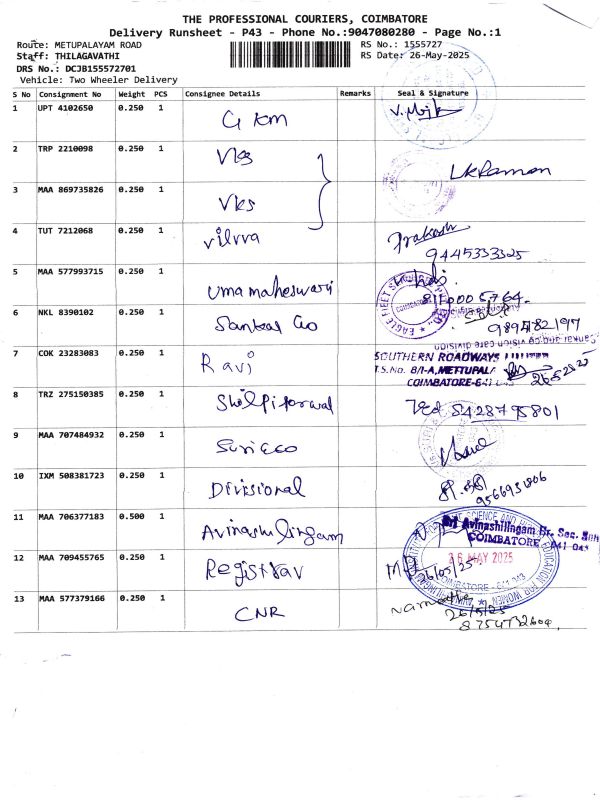 THE PROFESSIONAL COURIERS, COIMBATORE
Delivery Runsheet - P43 - Phone No.:9047080280 - Page No.:1
Route: METUPALAYAM ROAD RS No.: 1555727
Staff: THILAGAVATHI RS Date: 26-May-2025
DRS No.: DCJB155572701
Vehicle: Two Wheeler Delivery
S No Consignment No Weight PCS Consignee Details Remarks Seal & Signature
1 UPT 4102650 0.250 1 G Km
2 TRP 2210098 0.250 1 Vks LKRaman
3 MAA 869735826 0.250 1 Vks
4 TUT 7212068 0.250 1 Vilvva Prakash
9445333325
5 MAA 577993715 0.250 1 Umamaheswari
6 NKL 8390102 0.250 1 Sankar Co
7 COK 23283083 0.250 1 Ravi SOUTHERN ROADWAYS
T.S.No. 8/1-A, METTUPALA
COIMBATORE-641
8 TRZ 275150385 0.250 1 5428795801
9 MAA 707484932 0.250 1
10 IXM 508381723 0.250 1 Divisional
9566931806
11 MAA 706377183 0.500 1 Avinashilingam Sri Avinashilingam Hr. Sec. Sch
COIMBATORE 641 043
12 MAA 709455765 0.250 1 Registrar 26 MAY 2025
26/05/25
COIMBATORE - 641 043
13 MAA 577379166 0.250 1 CNR
26/5/25
8754732604